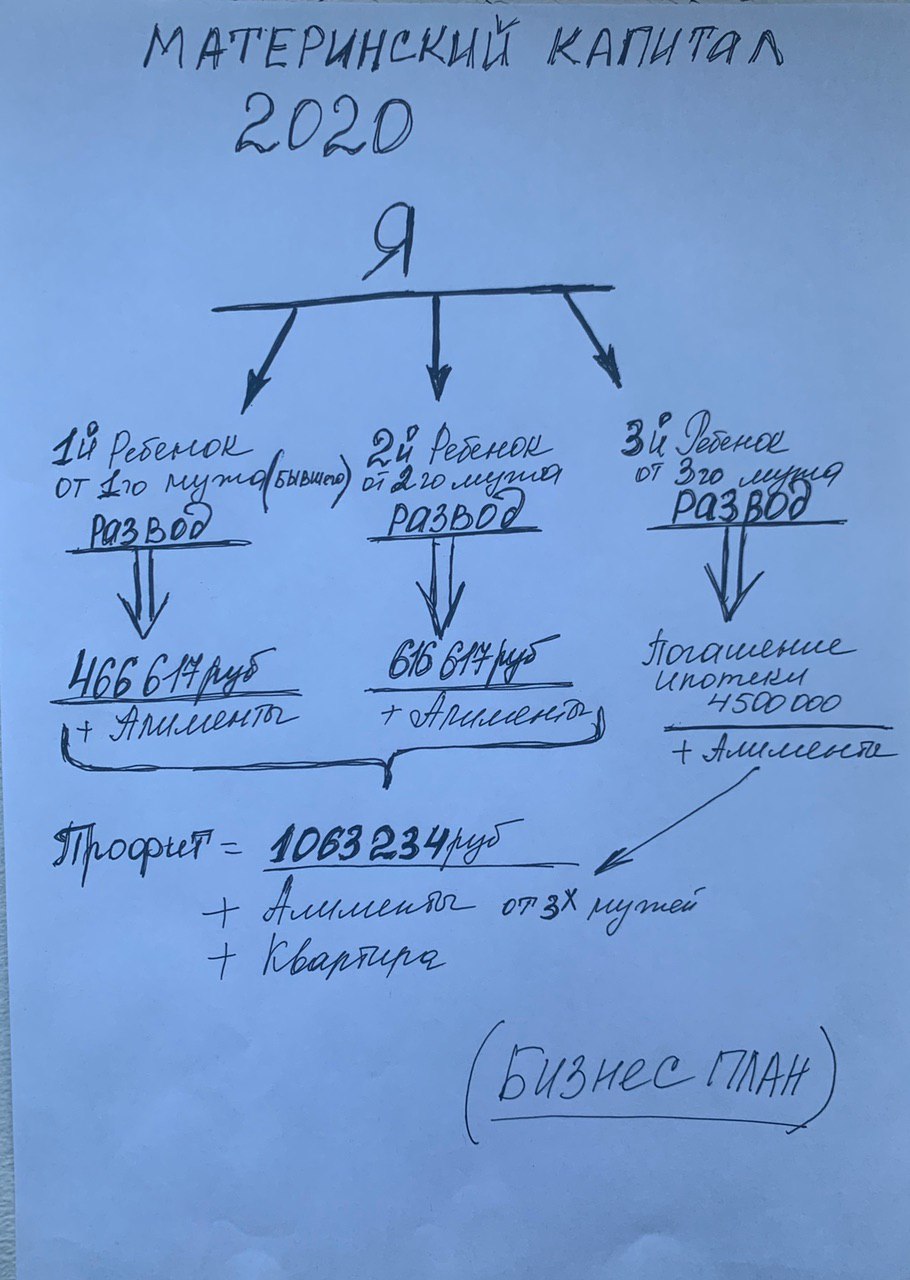 МАТЕРИНСКИЙ КАПИТАЛ
2020
Я
1й Ребенок
от 1го мужа (бывшего)
РАЗВОД
466 617 руб
+ Алименты
2й Ребенок
от 2го мужа
РАЗВОД
616 617 руб
+ Алименты
3й Ребенок
от 3го мужа
РАЗВОД
Погашение
ипотеки
4500 000
+ Алименты
Профит = 1063 234 руб
+ Алименты от 3х мужей
+ Квартира
(БИЗНЕС ПЛАН)